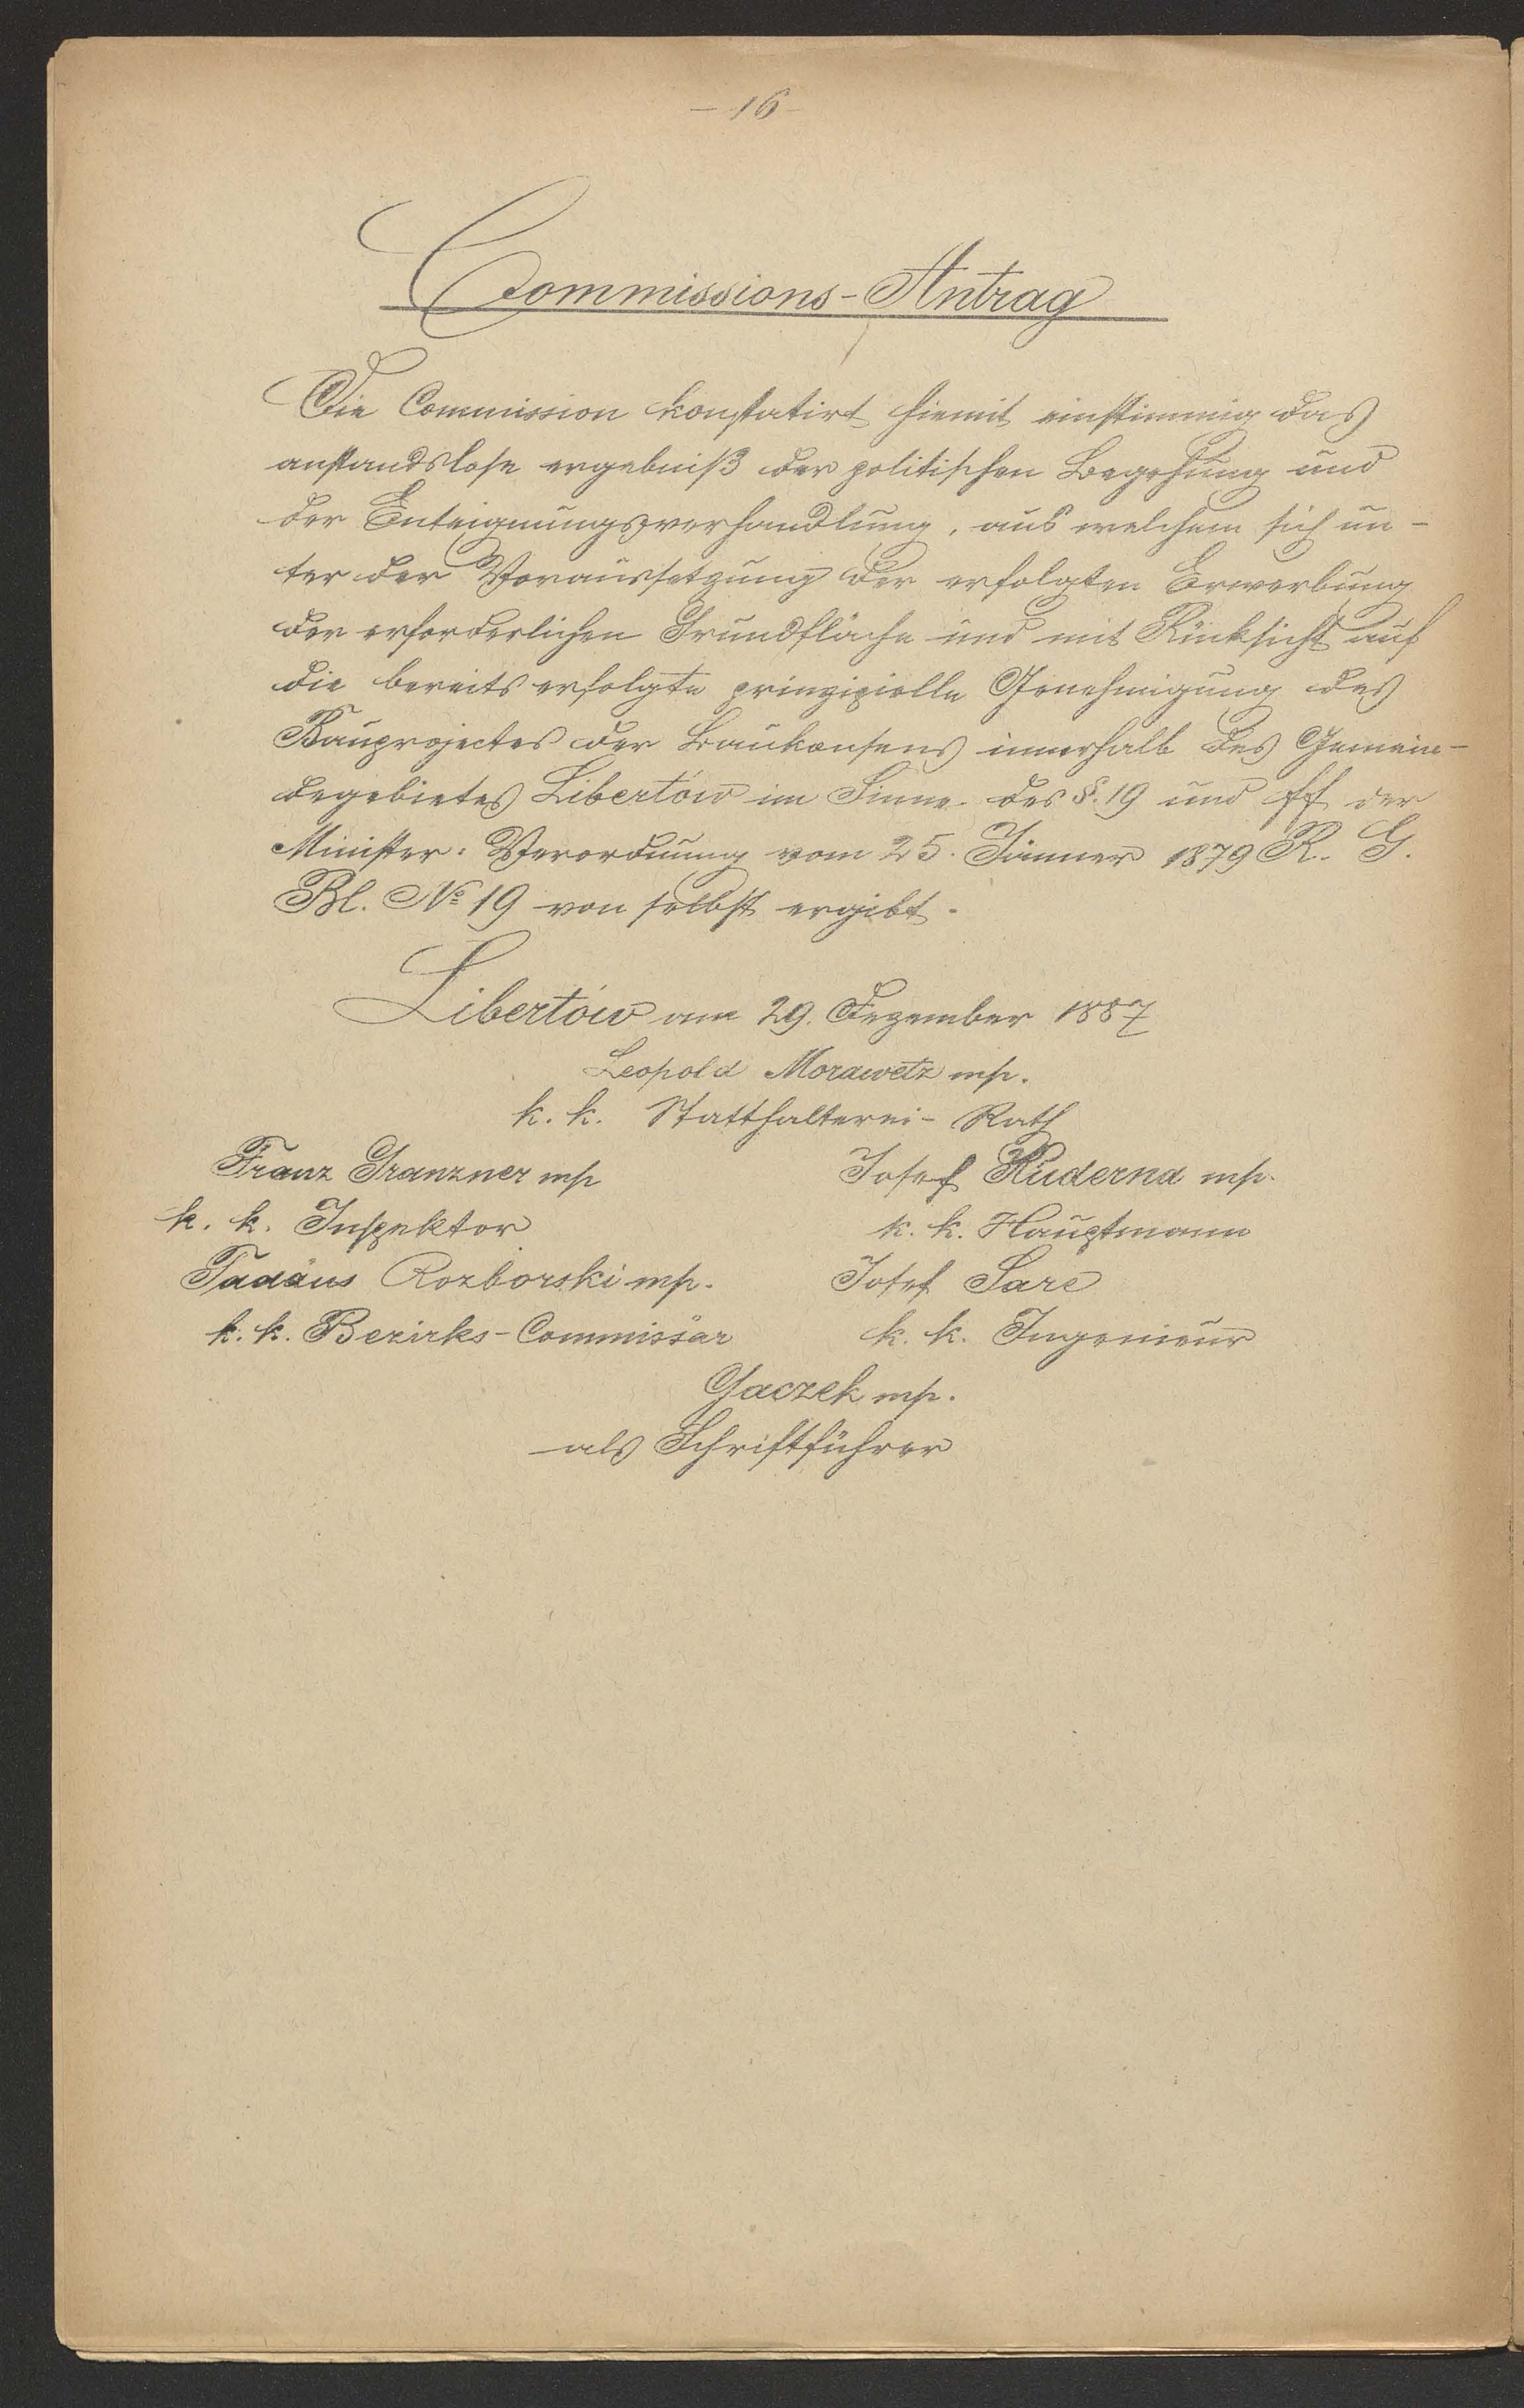 - 16 -
Commissions-Antrag
Die Commission konstatirt hiemit einstimmig das
anstandslose ergebniß der politischen Begehung und
der Enteignungsverhandlung, aus welchem sich un-
ter der Voraussetzung der erfolgten Erwerbung
der erforderlichen Grundfläche und mit Rücksicht auf
die bereits erfolgte prinzipielle Genehmigung des
Bauprojectes der Baukonsens innerhalb des Gemein-
degebietes Libertów im Sinne des §. 19 und ff der
Minister: Verordnung vom 25. Jänner 1879 R. G.
Bl. № 19 von selbst ergibt.
Libertów am 29. Dezember 1887
Leopold Morawetz mp.
k. k. Statthalterei- Rath
Franz Granzner mp Josef Kuderna mp.
k. k. Inspektor k. k. Hauptmann
Tadäus Rozborski mp. Josef Sare
k. k. Bezirks-Commissär k. k. Ingenieur
Gaczek mp.
als Schriftführer